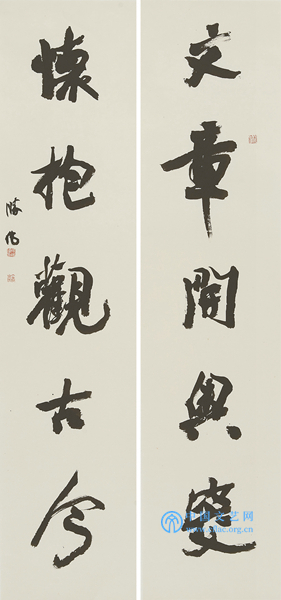 文章開奧窔
懷抱觀古今
中国文艺网
www.cflac.org.cn